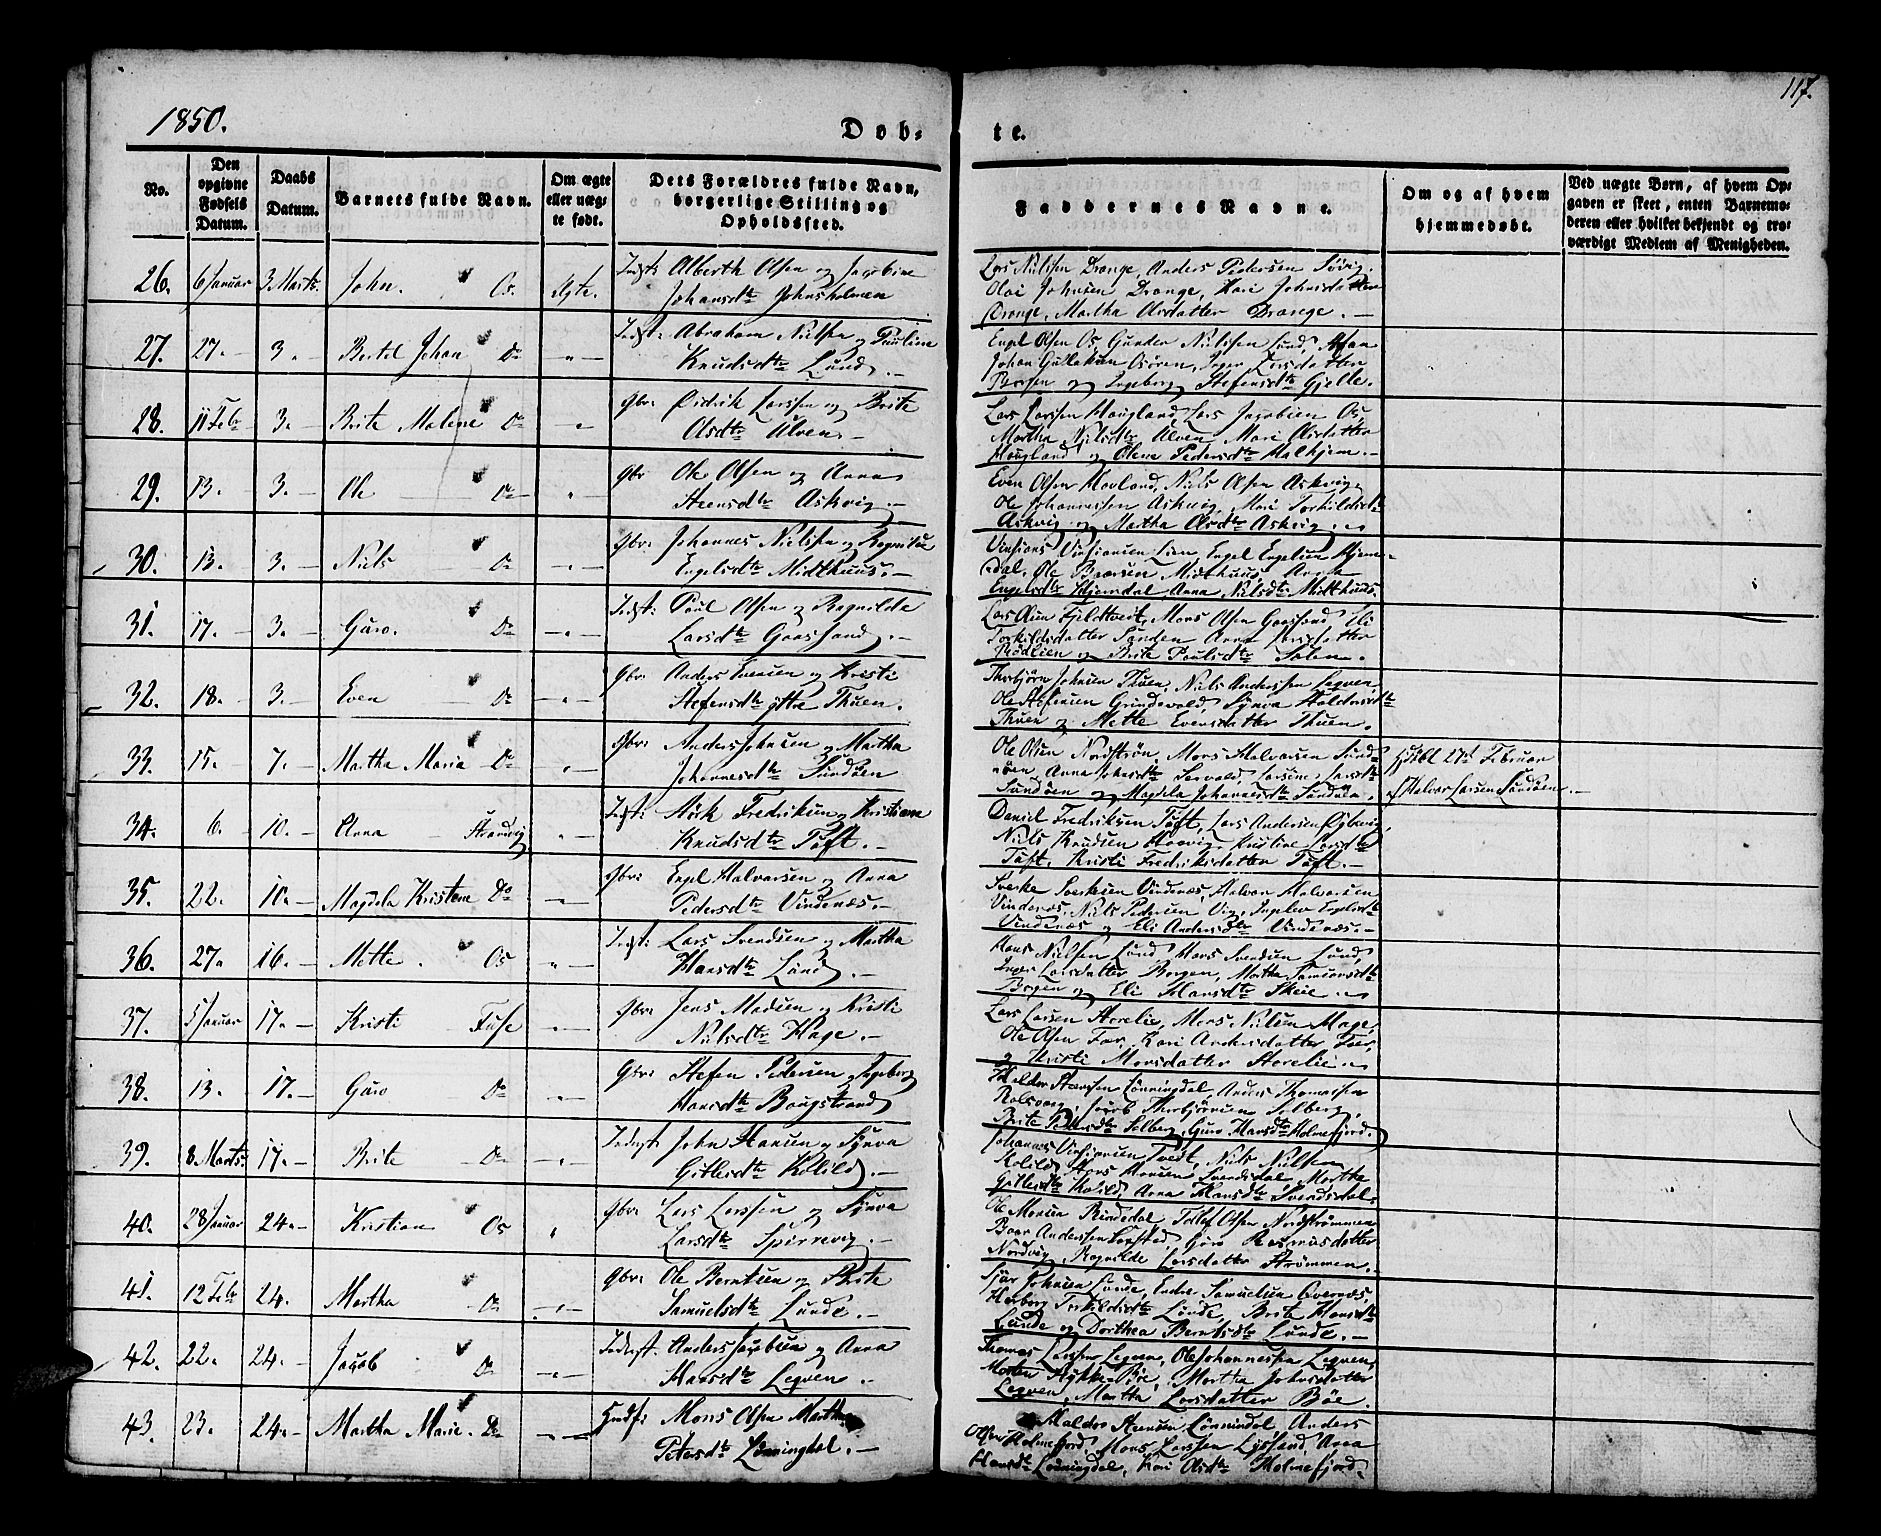 1850.
117.
Døb-
te.
No.
Den opgivne Fødsels Datum.
Daabs Datum.
Barnets fulde Navn.
Om ægte eller uæg-te født.
Dets Forældres fulde Navn, borgerlige Stilling og Opholdssted.
Faddernes Navne.
Om og af hvem hjemmedøbt.
Ved uægte Børn, af hvem Op-
gaven er skeet, enten Barnemo-
deren eller hvilket bekjendt og tro-
værdigt Medlem af Menigheden.
26. 6 Januar 3 Marts. John. Os. Ægte. Indst: Alberth Olsen og Jacobine
Johansdtr Johnsholmen
Lars Nilssen Drange, Anders Pedersen Søvig,
Oloi Johnsen Drange, Kari Johnsdatter
Drange, Martha Olsdatter Drange. —
27. 27. — 3. — Bertel Johan Do — " — Indst: Abraham Nilsen og Pauline
Knudsdtr Lund. —
Engel Olsen Os, Gunder Nielsen Lund,
Johan Gullaksen Osøren, Inger Larsdatter
Borgen og Ingeborg Stefensdtr Gjelle.
28. 11 Febr 3. — Brite Malene Do — " — Gbr: Didrik Larssen og Brite
Olsdtr Ulven. —
Lars Larssen Haugland, Lars Jacobsen Os,
Martha Nilsdtr Ulven, Mari Olsdatter
Haugland og Olene Pedersdtr Halhjem. —
29. 13. — 3. — Ole Do — " Gbr Ole Olsen og Anna
Steensdtr Askvig. —
Even Olsen Hovland, Niels Olsen Askvig,
Ole Johannessen Askvig, Mari Torkildsdtr
Askvig og Martha Olsdtr Askvig. —
30. 13. — 3. — Niels Do — " — Gbr: Johannes Nielsen og Ragnilde
Engelsdtr Midthuus. —
Vinsjans Vinsjansen Lien, Engel Engelsen Hjem-
dal, Ole Baarsen Midthuus, Anna
Engelsdtr Hjemdal, Anna Nilsdtr Midthuus.
31. 17. — 3. — Guro. Do — " — Indst: Poul Olsen og Ragnilda
Larsdtr Gaassand. —
Lars Fjeldtvedt, Mons Olsen Gaassand, Eli
Torkildsdatter Sanden, Anna Larsdatter
Rødlien og Brite Poulsdtr Solem.
32. 18. — 3. — Even Do — " — Gbr Anders Evensen og Kristi
Stefensdtr ytre Thuen.
Thorbjørn Johnsen Thuen, Niels Anderssen Legven,
Ole Stefensen Grindevold, Synva Haldorsdtr
Thuen og Mette Evensdatter Thuen.
33. 15. — 7. — Martha Maria Do — " — Gbr: Anders Johnsen og Martha
Johannesdtr Sundøen
Ole Olsen Nordstrøn, Mons Halvorsen Sund-
øen, Anna Johnsdtr Larsdtr
Sundøen og Magdela Johannesdtr Sundøen.
Hjdbt 27d Februar
af Halvor Larsen Sundøen. —
34. 6. — 10. — Anna Strandvig — " — Indst: Fredriksen og Kristiane
Knudsdtr Tøft. —
Daniel Fredriksen Tøft, Lars Andersen
Niels Knudsen Larsdtr
Tøft, Kristi Fredriksdatter Tøft. —
35. 22. 10. — Magdela Kristine Do — " — Gbr: Engel Halvorsen og Anna
Pedersdtr Vindenæs. —
Sverke Sverkesen Vindenæs, Halvor Halvorsen
Vindenæs, Niels Pedersen Vig, Ingelev Engelsdtr
Vindenæs og Eli Andersdtr Vindenæs. —
36. 27. 16. — Mette. Os — " — Indst: Lars Svendsen og Martha
Hansdtr Lund. —
Hans Nielsen Lund, Hans Svendsen Lund,
Inger Larsdatter Borgen, Martha Samsonsdtr
Borgen og Eli Hansdtr Skeie. —
37. 5 Januar 17. — Kristi Fuse — " — Gbr: Jens Madsen og Kristi
Nilsdtr Hage. —
Lars Larsen Storelie, Mons Nilsen Hage,
Ole Olsen Kari Andersdatter
og Kristi Monsdatter Storelie. —
38. 13. — 17. — Guro Do — " — Gbr: Stefen Pedersen og Ingeborg
Hansdtr Bougstrand
Haldor Lønningdal, Anders Thomassen
Rolsvaag, Jacob Thorbjørnsen Solberg,
Brite Pedersdtr Solberg, Guro Hansdtr Holmefjord.
39. 8 Marts 17. — Brite Do — " — Inderst: John Hansen og Synva
Gitlesdtr Kolild. —
Johannes Vinsjansen Tvedt, Niels Nilsen
Kolild, Hans Hansen Svendsdal, Martha
Gitlesdtr Kolild, Anna Hansdtr Svendsdal.
40. 28 Januar 24. — Kristian Os " Gbr: Lars Larssen og Synva
Larsdtr Spirrevig. —
Ole Monsen Rindedal, Tollef Olsen Nordstrømmen,
Baar Anderssen Guro Rasmusdatter
Nordvig, Ragnilde Larsdatter Strømmen.
41. 12 Febr 24. Martha Do — " — Gbr: Ole Berntsen og Brite
Samuelsdtr Lunde. —
Sjur Johnsen Lunde, Endre Samuelsen Overnæs,
Herborg Torkildsdtr Lunde, Brite Hansdtr
Lunde og Dorthea Berntsdtr Lunde. —
42. 22. 24. — Jacob Do — " — Inderst: Anders Jacobsen og Anna
Hansdtr Legven. —
Thomas Larssen Legven, Ole Johannessen Legven,
Morten Bøe, Martha Johnsdatter
Legven, Martha Larsdatter Bøe.
43. 23. 24. — Martha Marie. Do — " — Mons Olsen Martha
Petersdtr Lønningdal. —
Haldor Lønningdal, Anders
Olsen Holmefjord, Mons Larssen Lysland, Anna
Hansdtr Lønningdal, Kari Olsdtr Holmefjord.